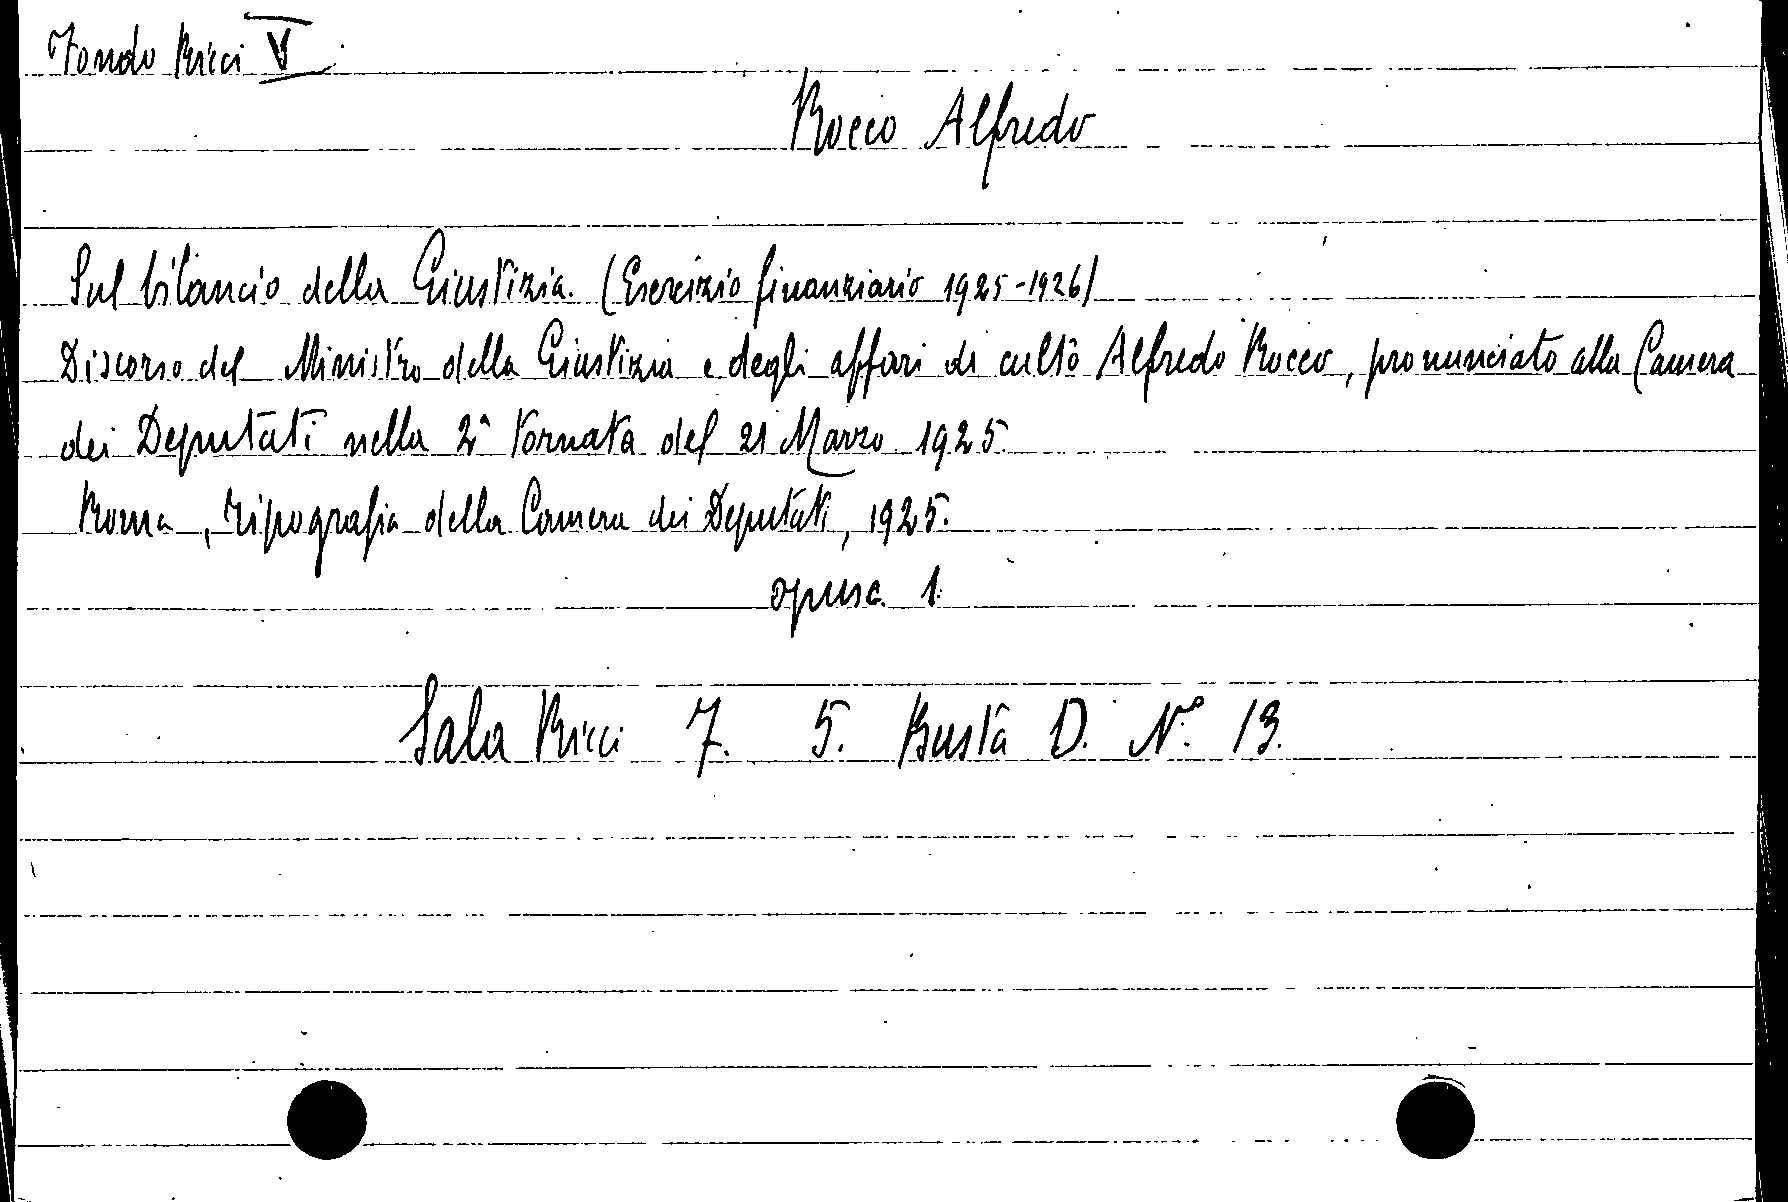 Fondo Ricci V
Rocco Alfredo
Sul bilancio della Giustizia. (Esercizio finanziario 1925-1926)
Discorso del Ministro della Giustizia e degli affari di culto Alfredo Rocco, pronunciato alla Camera
dei Deputati nella 2ª tornata del 21 Marzo 1925.
Roma, Tipografia della Camera dei Deputati, 1925.
opusc. 1
Sala Ricci 7. 5. Busta D. N.° 13.